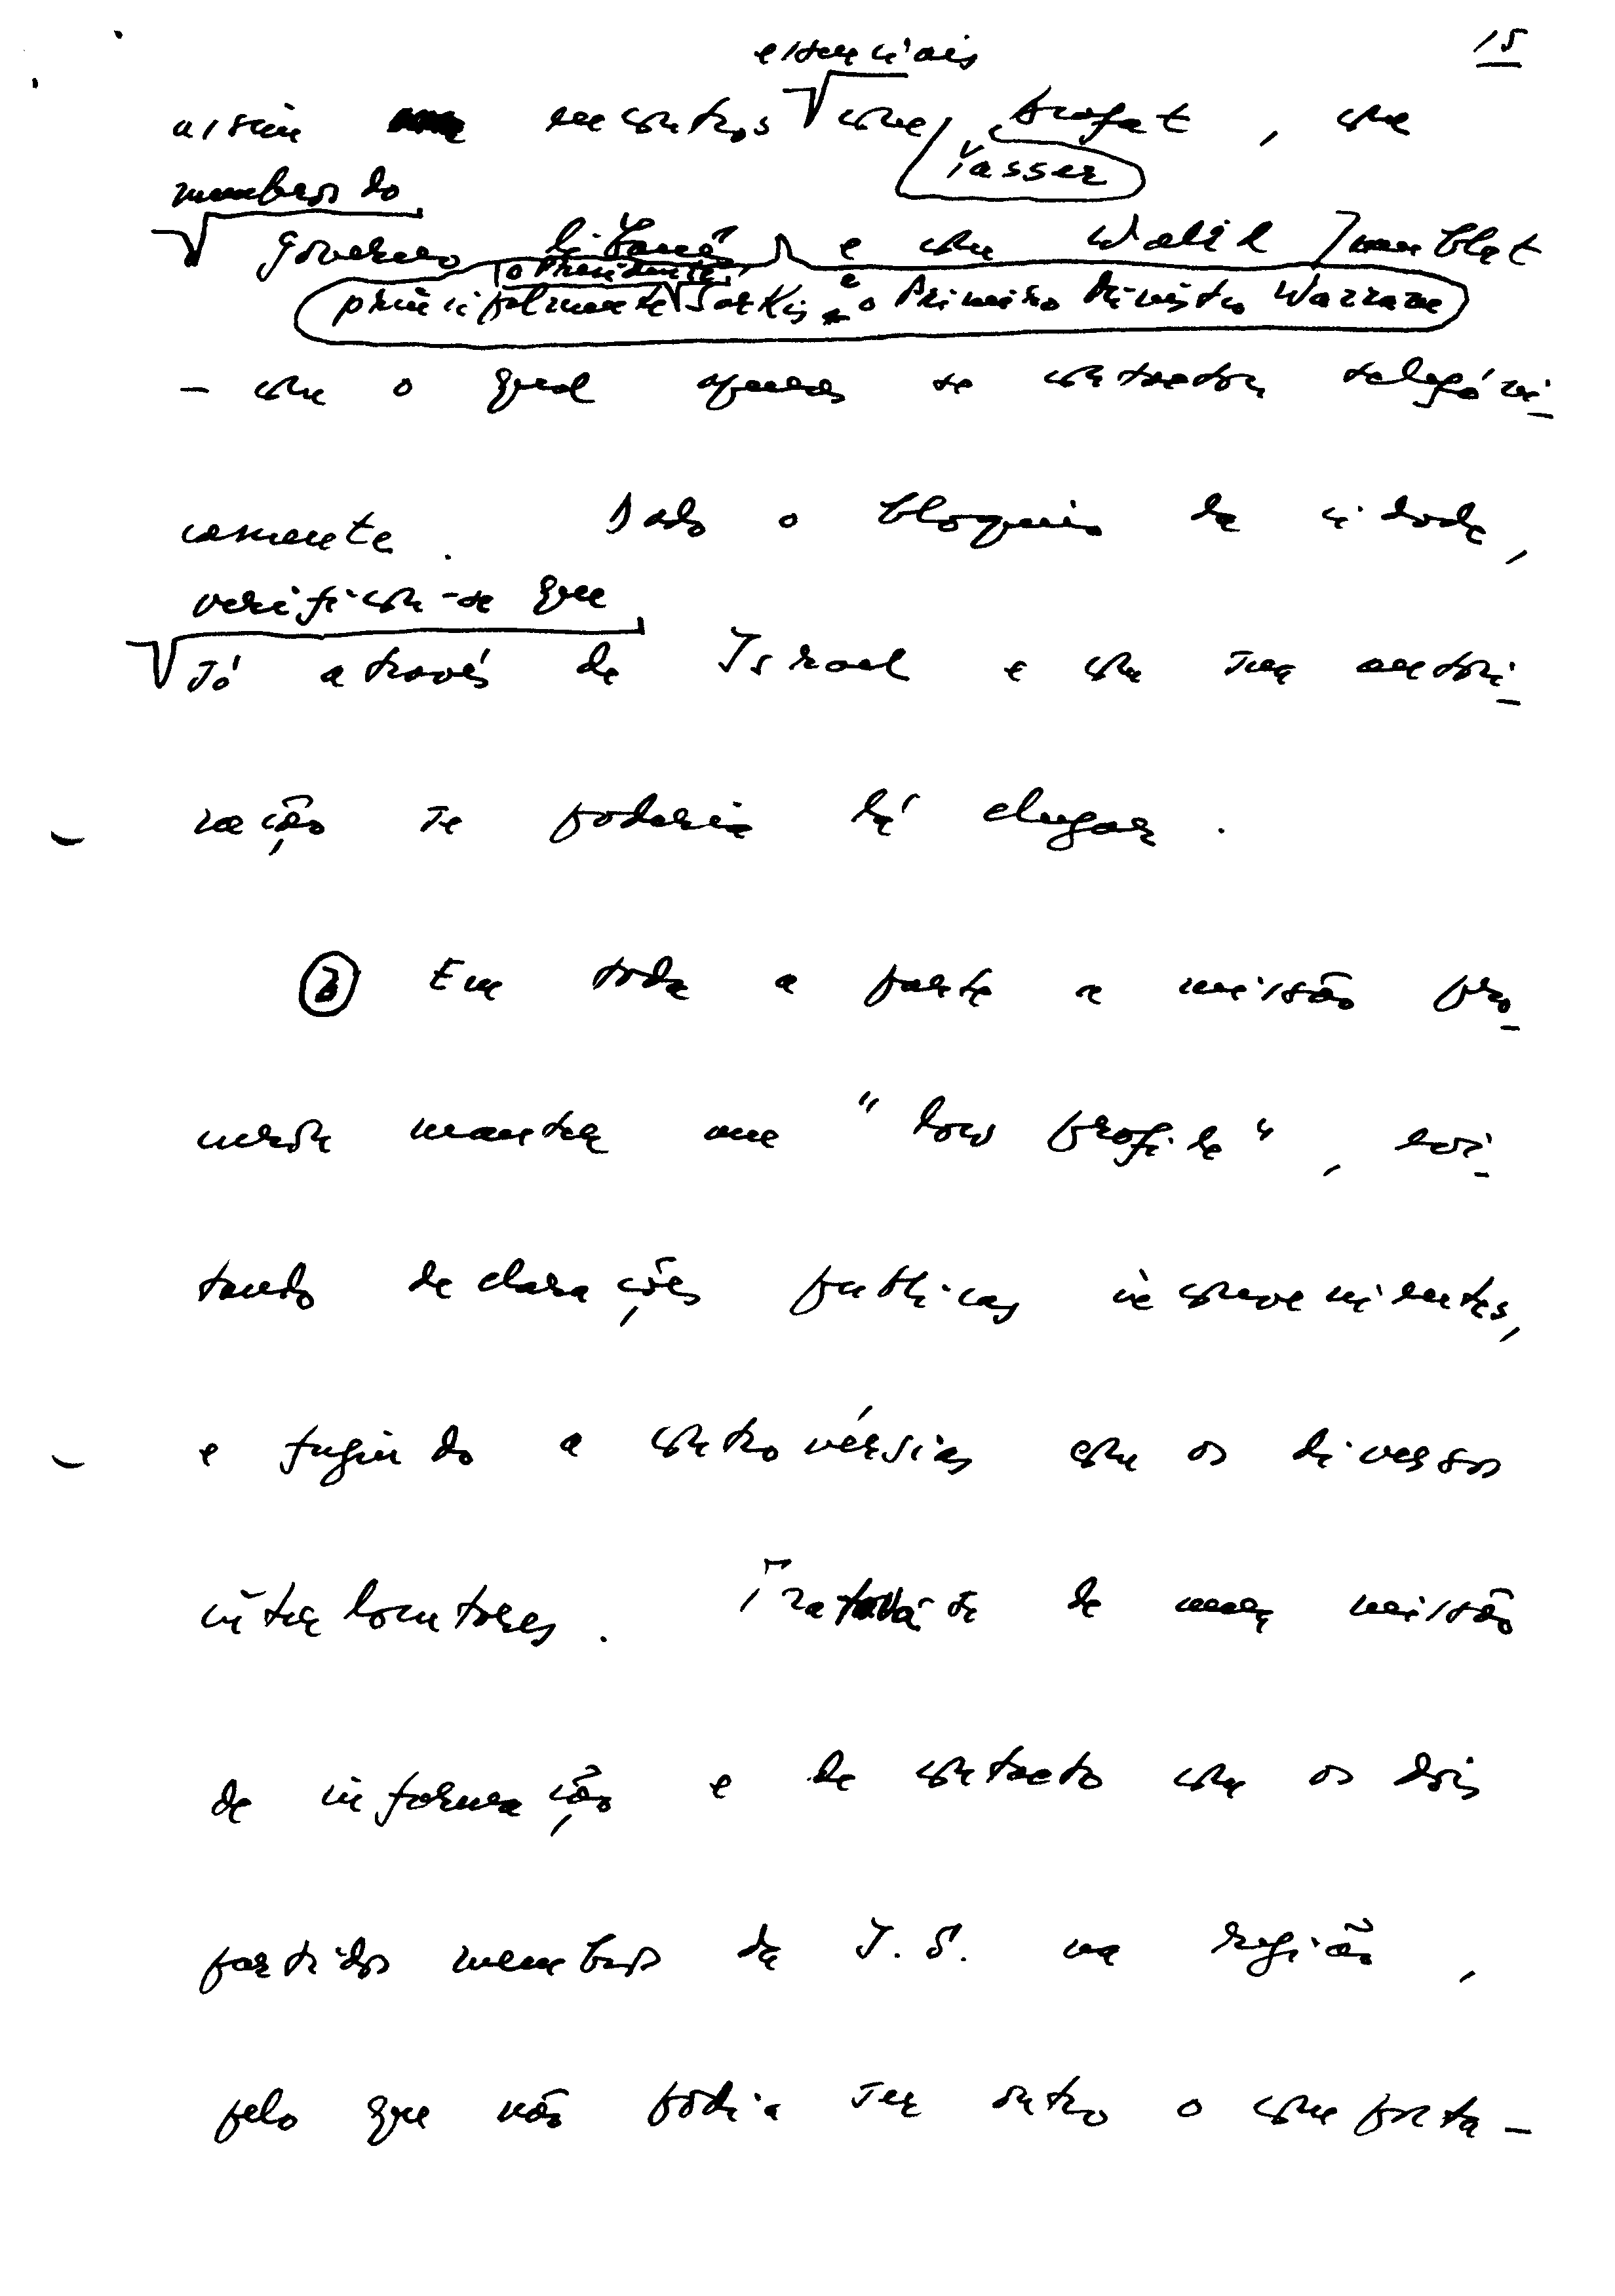 15
essenciais
assim encontros com Arafat, com
Yasser
membros do
Governo Libanês, e com Walid Jumblat
o Presidente
principalmente Sarkis e o Primeiro Ministro Wazzane
- com o qual apenas se contactou telefóni-
camente. Dado o bloqueio da cidade,
verificou-se que
só através de Israel e com sua autori-
zação se poderia lá chegar.
3 Em toda a parte a missão pro-
curou manter um "low profile", evi-
tando declarações publicas inconvenientes,
e fugindo a controvérsias com os diversos
interlocutores. Tratava-se de uma missão
de informação e de contacto com os dois
partidos membros da I.S. na região,
pelo que não podia ser outro o comporta-